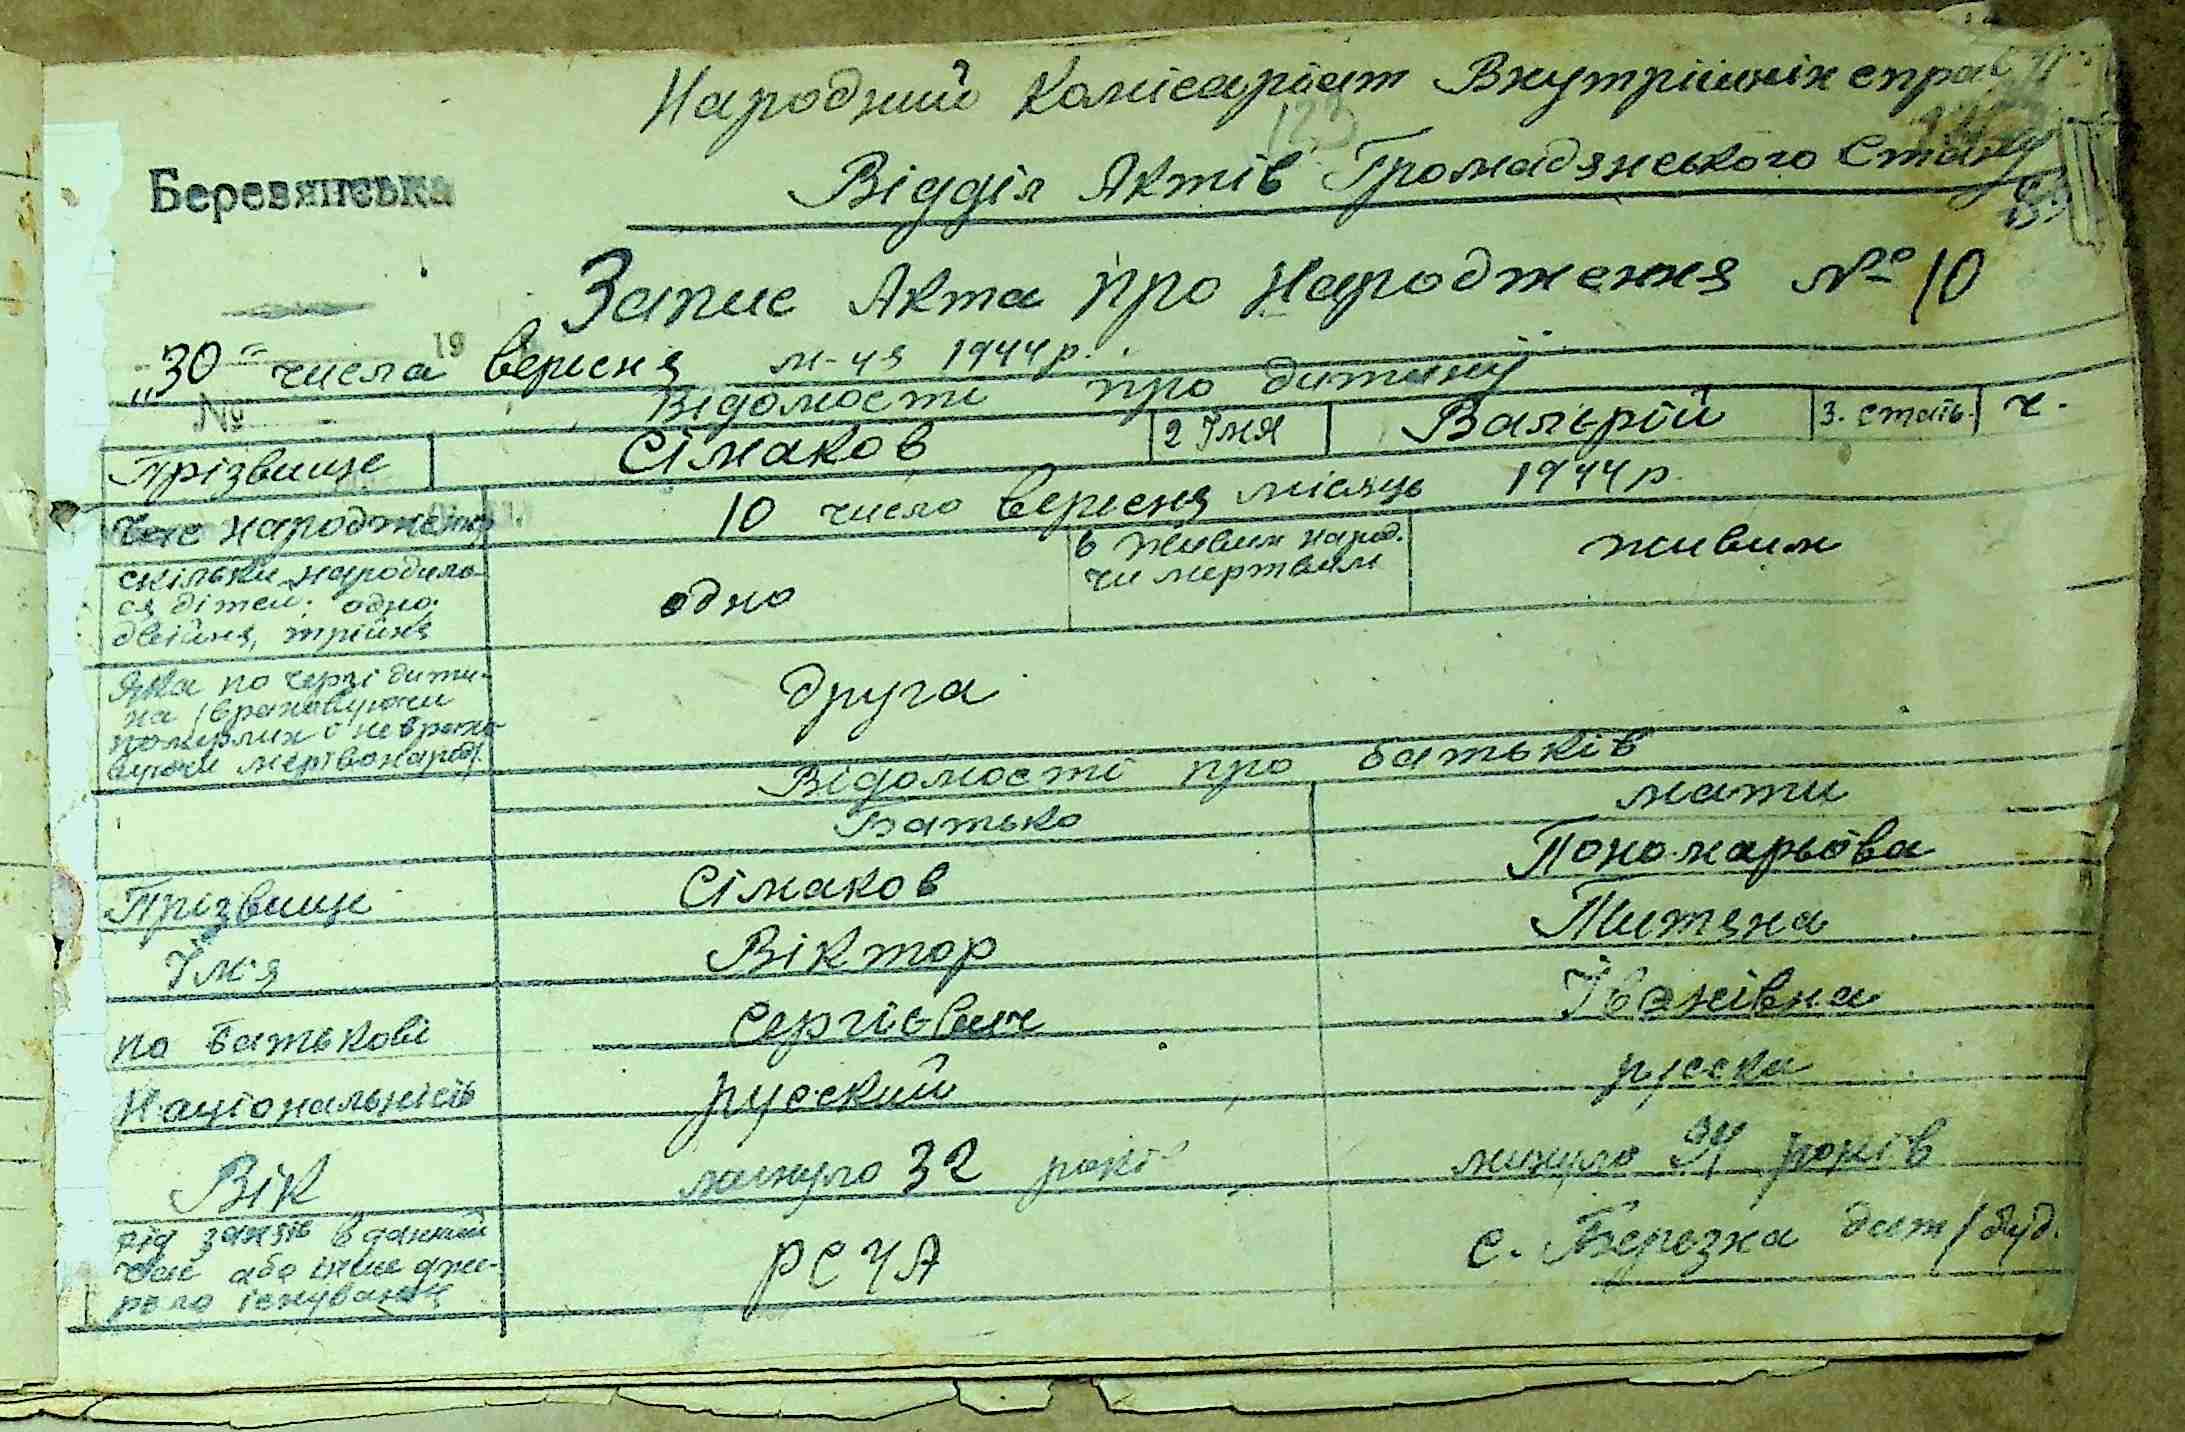 Народний Комісаріят Внутрішніх справ
123
Відділ Актів Громадянського Стану
Беревянська
Запис Акта про Народження № 10
"30" числа 19 вересня м-ця 1944 р.
№ Відомости про дитину
Прізвище Сімаков 2 Імя Валєрій 3. стать. ч.
Час народження. 10 число вересня місяць 1944 р.
скільки народило-
ся дітей: одно.
двійня, трійня
одно
6 живим народ.
чи мертвим
живим
Яка по черзі дити-
на /враховуючи
померлих і невраха-
вуючи мертвонарод/.
друга
Відомості про батьків
Батько мати
Прізвище Сімаков Пономарьова
Імя Віктор Титяна
по батькові Сергієвич Іванівна
Національність русский русска
Вік минуло 32 роки минуло років
рід занять в данний
час або інше дже-
рело існування
РСЧА
с. Березка дит/буд.